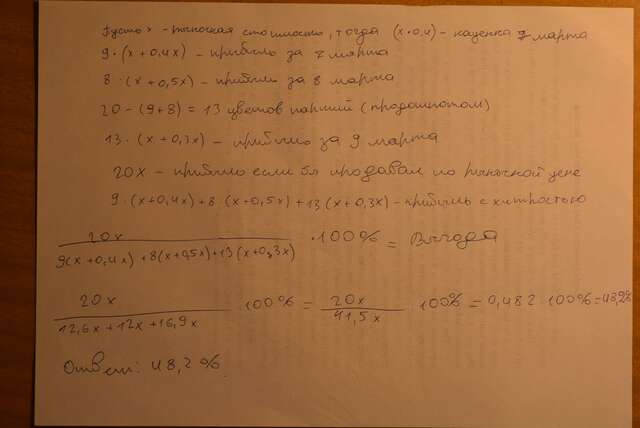 Пусть x - рыночная стоимость, тогда (x·0,4) - наценка 7 марта
9·(x+0,4x) - прибыль за 7 марта
8·(x+0,5x) - прибыль за 8 марта
20-(9+8) = 13 цветов
13·(x+0,3x) - прибыль за 9 марта
20x - прибыль если бы продавал по рыночной цене
9·(x+0,4x)+8·(x+0,5x)+13(x+0,3x) - прибыль с хитростью
20x / 9(x+0,4x)+8(x+0,5x)+13(x+0,3x) ·100% = Выгода
20x / 12,6x+12x+16,9x ·100% = 20x / 41,5x ·100% = 0,482·100% = 48,2%
Ответ: 48,2%